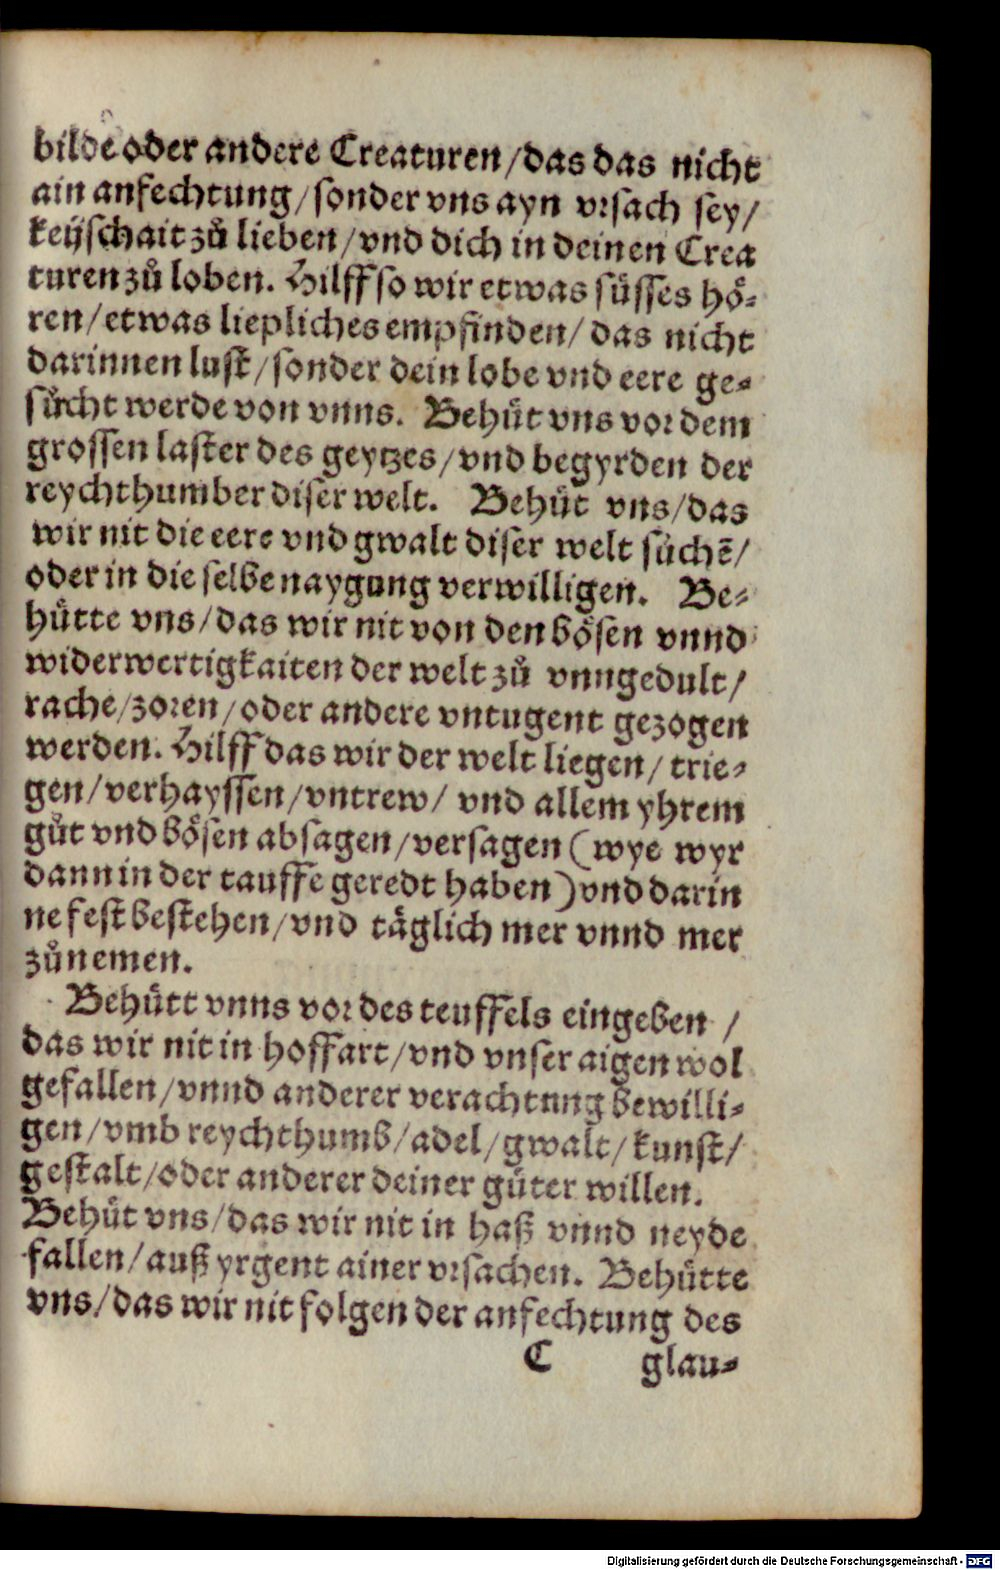 bilde oder andere Creaturen/das das nicht
ain anfechtung/sonder vns ayn vrsach sey/
keüschait zů lieben/vnd dich in deinen Crea
turen zů loben. Hilff so wir etwas süsses hö-
ren/etwas liepliches empfinden/das nicht
darinnen lust/sonder dein lobe vnd eere ge-
sůcht werde von vnns. Behüt vns vor dem
grossen laster des geytzes/vnd begyrden der
reychthumber diser welt. Behüt vns/das
wir nit die eere vnd gwalt diser welt sůchē/
oder in die selbe naygung verwilligen. Be-
hütte vns/das wir nit von den bösen vnnd
widerwertigkaiten der welt zů vnngedult/
rache/zoren/oder andere vntugent gezogen
werden. Hilff das wir der welt liegen/trie-
gen/verhayssen/vntrew/ vnd allem yhrem
gůt vnd bösen absagen/versagen (wye wyr
dann in der tauffe geredt haben) vnd darin
ne fest bestehen/vnd täglich mer vnnd mer
zůnemen.
Behütt vnns vor des teuffels eingeben /
das wir nit in hoffart/vnd vnser aigen wol
gefallen/vnnd anderer verachtung bewilli-
gen/vmb reychthumb/adel/gwalt/kunst/
gestalt/oder anderer deiner güter willen.
Behüt vns/das wir nit in haß vnnd neyde
fallen/auß yrgent ainer vrsachen. Behütte
vns/das wir nit folgen der anfechtung des
C glau-
Digitalisierung gefördert durch die Deutsche Forschungsgemeinschaft - DFG